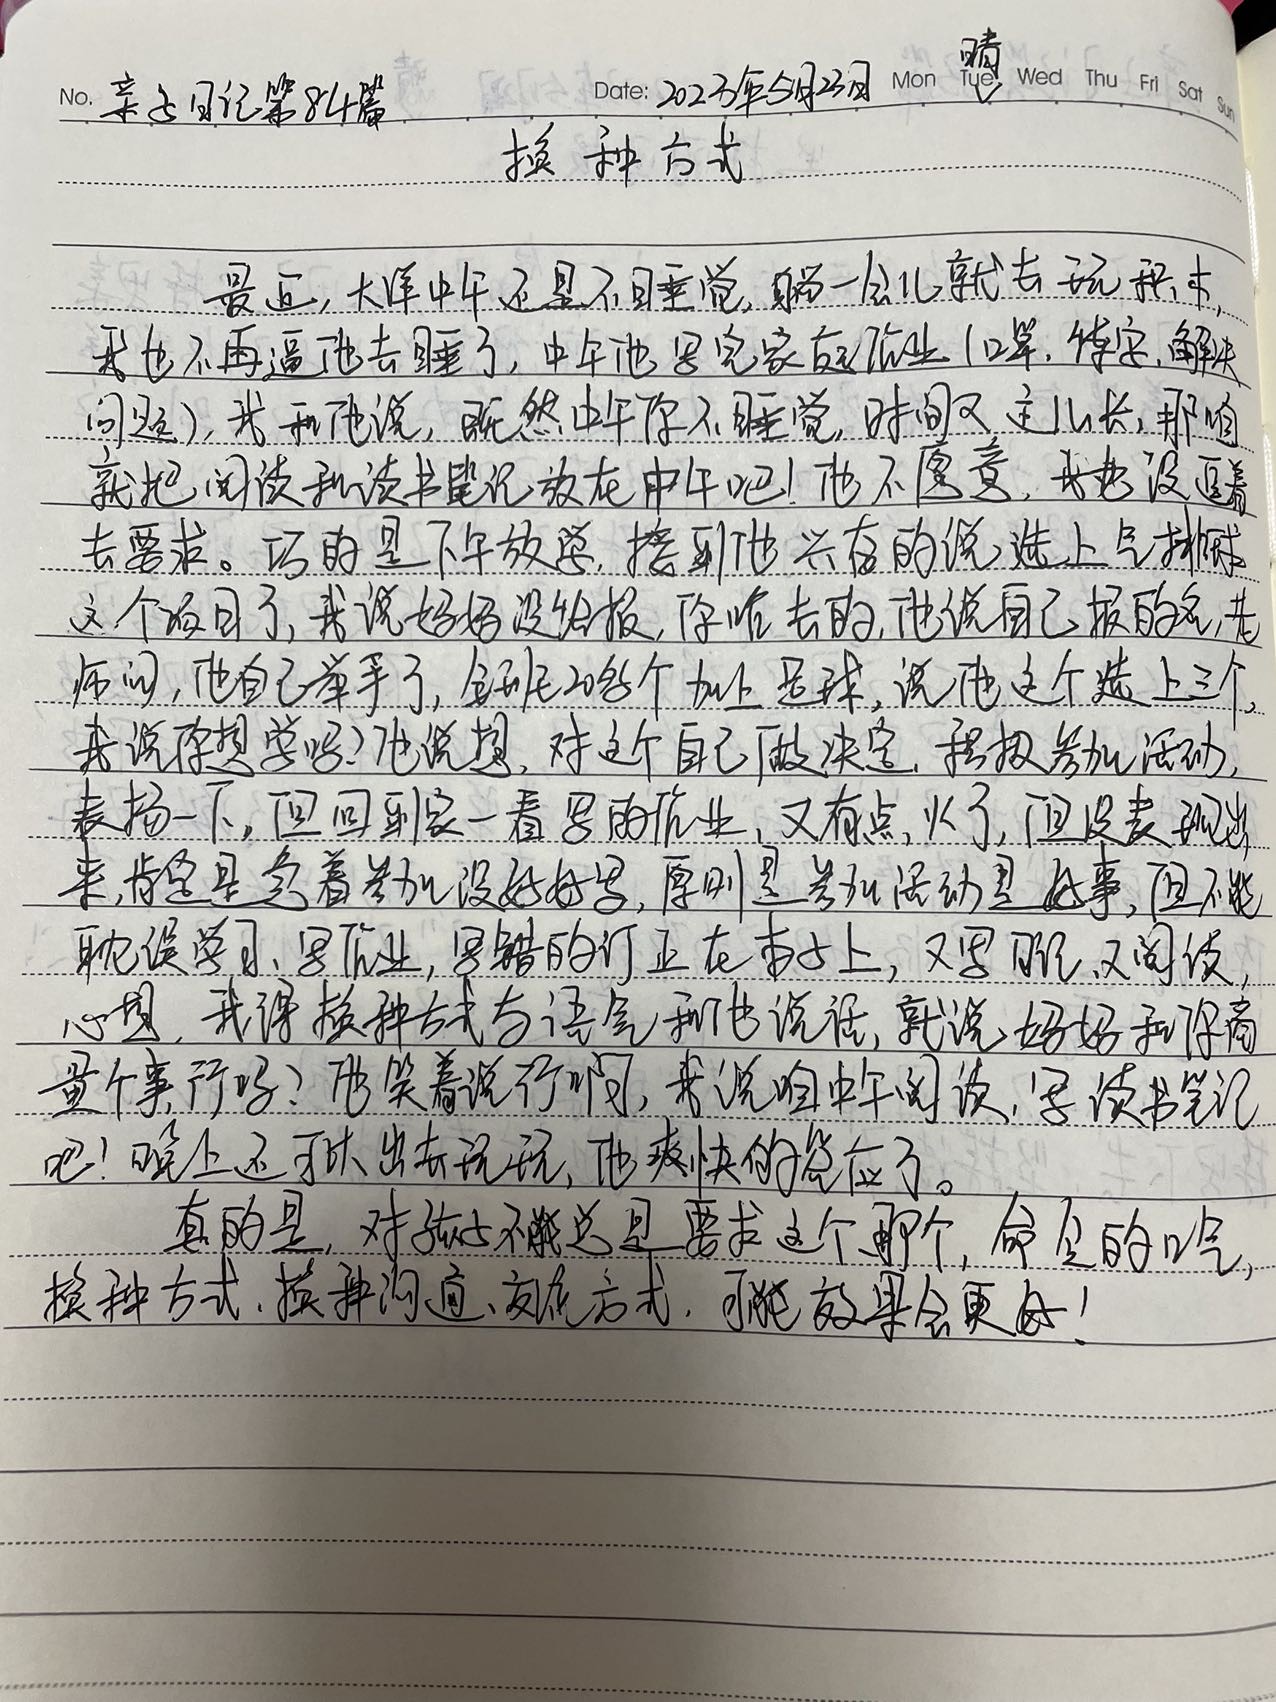 No. 亲子日记第84篇 Date: 2023年5月23日 Mon Tue Wed Thu Fri Sat Sun 晴
换种方式
最近,大洋中午还是不睡觉,躺一会儿就去玩积木,
我也不再逼他去睡了,中午他写完家庭作业(口算、练字、解决
问题),我和他说,既然中午你不睡觉,时间又这么长,那咱
就把阅读和读书笔记放在中午吧!他不愿意,我也没逼着
去要求。巧的是下午放学,接到他兴奋的说选上气排球
这个项目了,我说妈妈没给报,你咋去的,他说自己报的名,老
师问,他自己举手了,全班20多个加上足球,说他这个选上三个,
我说你想学吗?他说想,对这个自己做决定,积极参加活动,
表扬一下,但回到家一看写的作业,又有点火了,但没表现出
来,肯定是急着参加没好好写,原则是参加活动是好事,但不能
耽误学习、写作业,写错的订正在本子上,又写日记,又阅读,
心想,我得换种方式与语气和他说话,就说妈妈和你商
量个事,行吗?他笑着说行啊,我说咱中午阅读,写读书笔记
吧!晚上还可以出去玩玩,他爽快的答应了。
真的是,对孩子不能总是要求这个那个,命令的口气,
换种方式、换种沟通、交流方式,可能效果会更好!